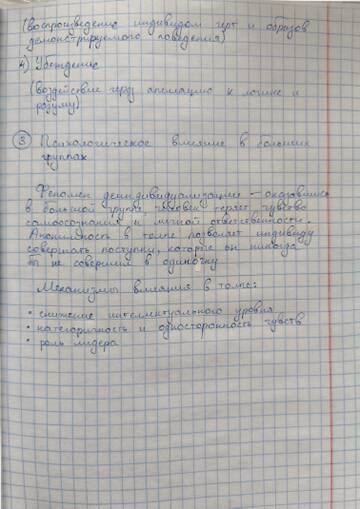 (воспроизведение индивидом черт и образов
демонстрируемого поведения)
4) Убеждение
(воздействие через апелляцию к логике и
разуму)
③ Психологическое влияние в больших
группах
Феномен деиндивидуализации - оказавшись
в большой группе, человек теряет чувство
самосознания и личной ответственности.
Анонимность в толпе позволяет индивиду
совершать поступки, которые он никогда
бы не совершил в одиночку
Механизмы влияния в толпе:
• снижение интеллектуального уровня
• категоричность и односторонность чувств
• роль лидера